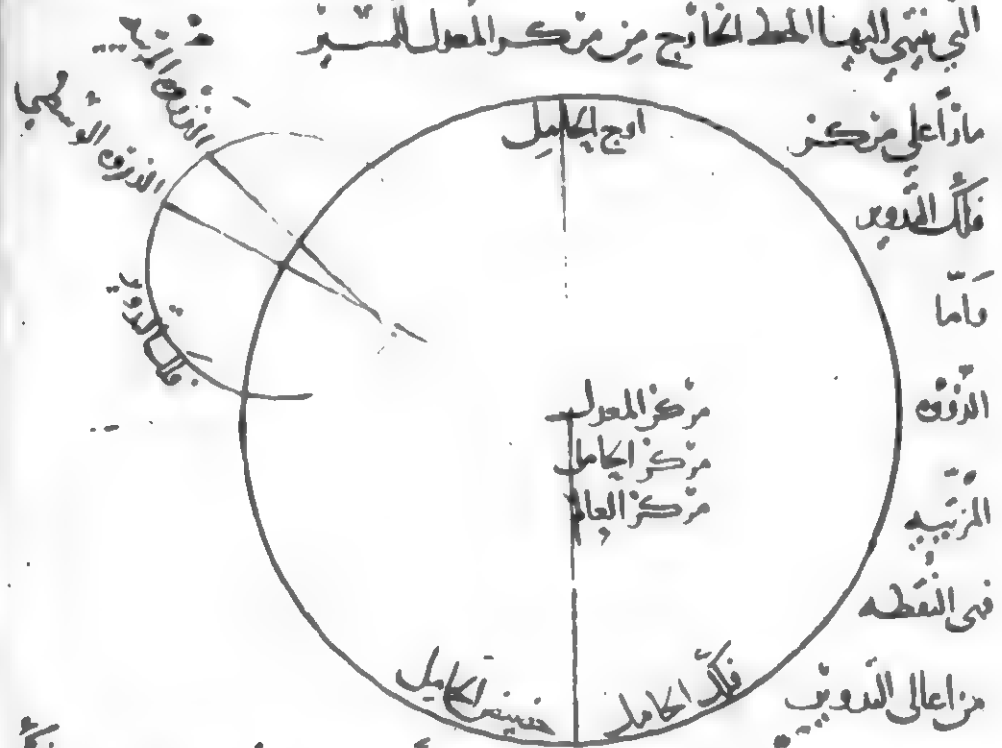 التي ينتهي اليها الخط الخارج من مركز المعدل للمسير
مارًّا على مركز
فلك التدوير
وامّا
الذروه
المرئيه
فهي النقطه
من اعالي التدوير
اوج الحامل
الذروه المرئيه
الذروه الوسطي
فلك التدوير
مركز المعدل
مركز الحامل
مركز العالم
حضيض الحامل
فلك الحامل